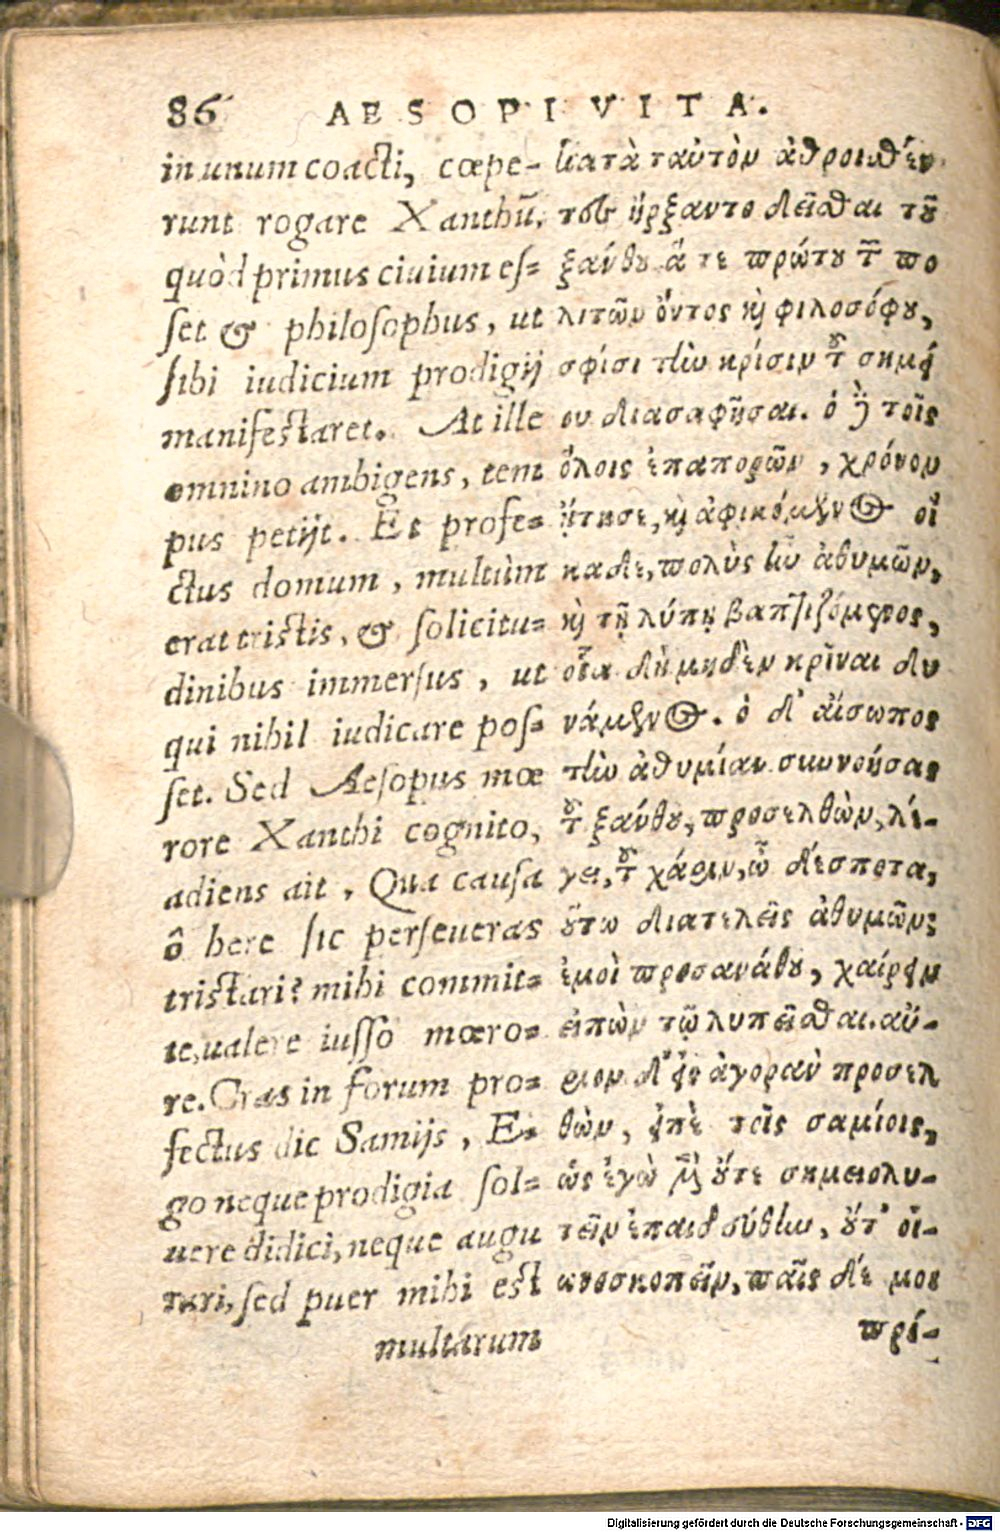 86 AESOPI VITA.
in unum coacti, cœpe-
runt rogare Xanthū,
quòd primus ciuium es-
set & philosophus, ut
sibi iudicium prodigij
manifestaret. At ille
omnino ambigens, tem
pus petijt. Et profe-
ctus domum, multùm
erat tristis, & solicitu-
dinibus immersus, ut
qui nihil iudicare pos-
set. Sed Aesopus mœ
rore Xanthi cognito,
adiens ait, Qua causa
ô here sic perseueras
tristari? mihi commit-
te, ualere iusso mœro-
re. Cras in forum pro-
fectus dic Samijs, E-
go neque prodigia sol-
uere didici, neque augu
rari, sed puer mihi est
multarum
κατὰ ταὐτὸν ἀθροισθέν
τες ἤρξαντο δεῖσθαι τοῦ
ξάνθου ἅ τε πρώτου τῶν πο
λιτῶν ὄντος καὶ φιλοσόφου,
σφίσι τὴν κρίσιν τοῦ σημεί
ου διασαφῆσαι. ὁ δὲ τοῖς
ὅλοις ἐπαπορῶν, χρόνον
ᾔτησε, καὶ ἀφικόμενος οἴ
καδε, πολὺς ἦν ἀθυμῶν,
καὶ τῇ λύπῃ βαπτιζόμενος,
οἷα δὴ μηδὲν κρῖναι δυ
νάμενος. ὁ δ' αἴσωπος
τὴν ἀθυμίαν συννοήσας
τοῦ ξάνθου, προσελθὼν, λέ-
γει, τοῦ χάριν, ὦ δέσποτα,
οὕτω διατελεῖς ἀθυμῶν;
ἐμοὶ προσανάθου, χαίρειν
εἰπὼν τῷ λυπεῖσθαι. αὔ-
ριον δ' εἰς ἀγορὰν προσελ
θὼν, εἰπὲ τοῖς σαμίοις,
ὡς ἐγὼ μὲν οὔτε σημειολυ-
τεῖν ἐπαιδεύθην, οὔτ' οἰ-
ωνοσκοπεῖν, παῖς δέ μοι
πρί-
Digitalisierung gefördert durch die Deutsche Forschungsgemeinschaft - DFG